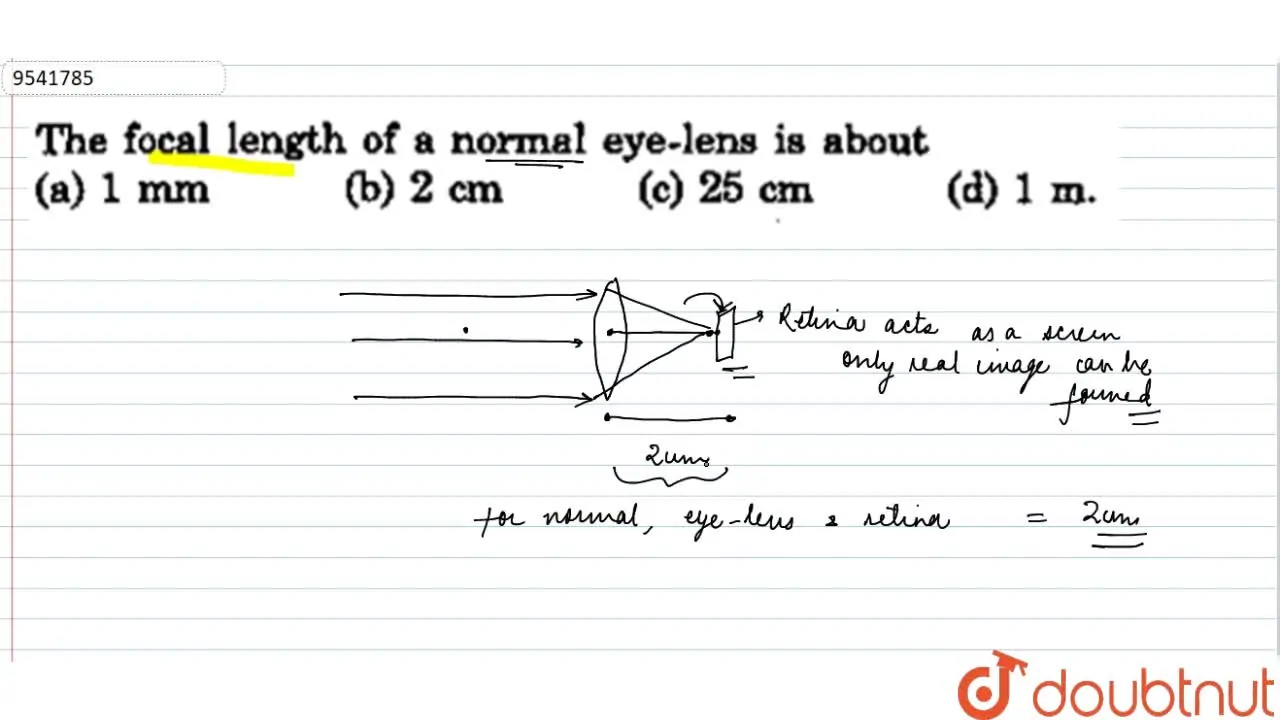 9541785
The focal length of a normal eye-lens is about
(a) 1 mm (b) 2 cm (c) 25 cm (d) 1 m.
Retina acts as a screen
only real image can be
formed
2cms
for normal, eye-lens & retina = 2cms
doubtnut